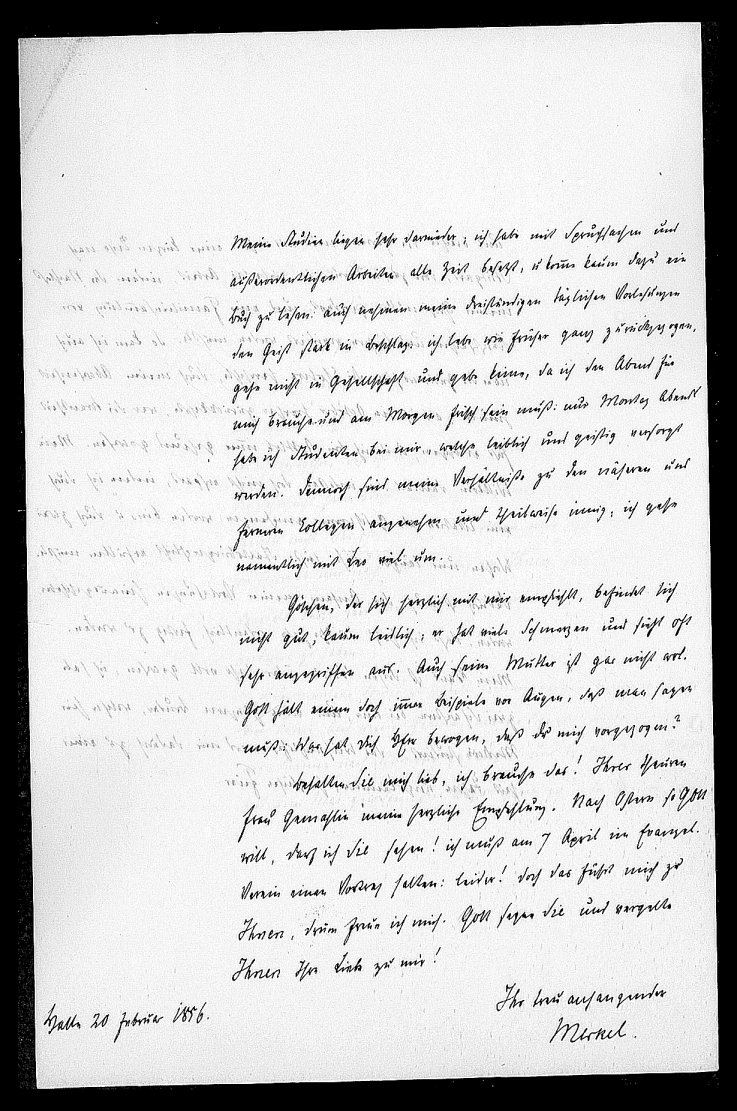 Meine Studien liegen sehr darnieder; ich habe mit Spruchsachen und
außerordentlichen Arbeiten alle Zeit besetzt, u komme kaum dazu ein
Buch zu lesen. auch nehmen meine dreistündigen täglichen Vorlesungen
den Geist stark in Beschlag. ich lebe wie früher ganz zurückgezogen,
gehe nicht in Gesellschaft und gebe keine, da ich den Abend für
mich brauche und am Morgen frisch sein muß: nur Montag Abends
habe ich Studenten bei mir, welche leiblich und geistig versorgt
werden. Dennoch sind meine Verhältniße zu den näheren und
ferneren Collegen angenehm und theilweise innig; ich gehe
namentlich mit Leo viel um.
Göschen, der sich herzlich mit mir empfiehlt, befindet sich
nicht gut, kaum leidlich; er hat viele Schmerzen und sieht oft
sehr angegriffen aus. Auch seine Mutter ist gar nicht wol.
Gott hält einem doch immer Beispiele vor Augen, daß man sagen
muß: Was hat dich HErr bewogen, daß du mich vorgezogen?
Behalten Sie mich lieb, ich brauche das! Ihrer theuren
Frau Gemahlin meine herzliche Empfehlung. Nach Ostern so Gott
will, darf ich Sie sehen! ich muß am 7 April im Evangel.
Verein einen Vortrag halten: leider! doch das führt mich zu
Ihnen, drum freue ich mich. Gott segne Sie und vergelte
Ihnen Ihre Liebe zu mir!
Ihr treu anhangender
Halle 20 Februar 1856.
Merkel.